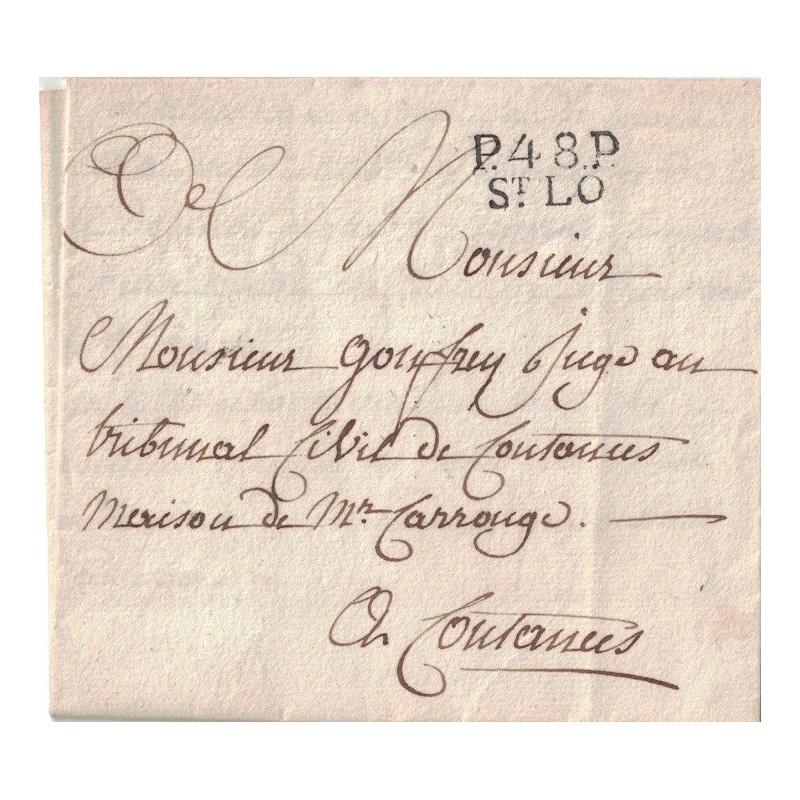 P.48.P.
ST. LO
Monsieur
Monsieur gouffrey Juge au
tribunal Civil de Coutances
maison de Mr. Carrouge.
A Coutances